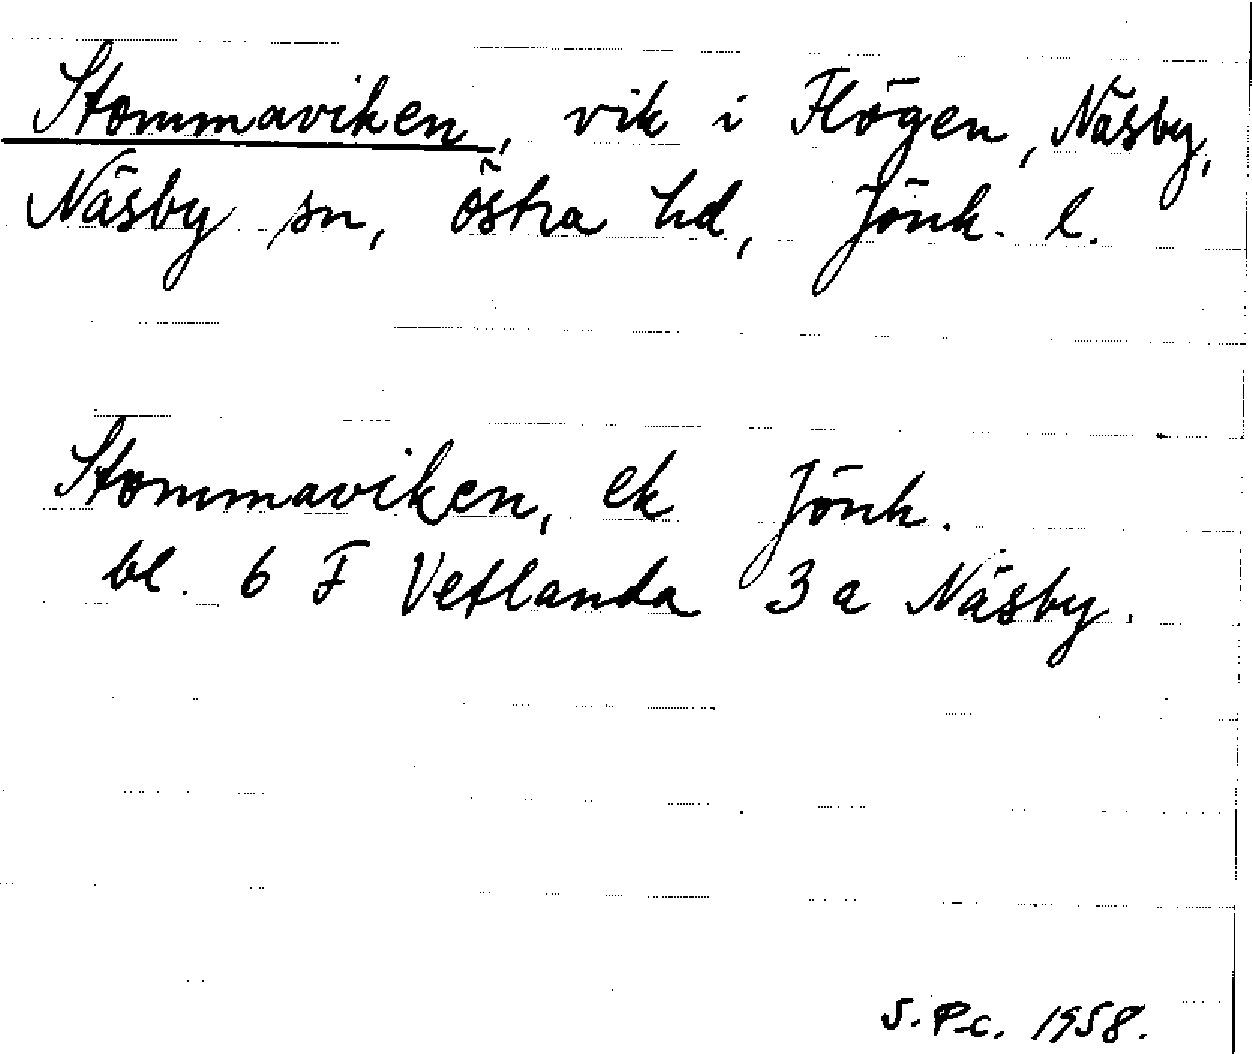 Stommaviken, vik i Flögen, Näsby,
Näsby sn, östra hd, Jönk. l.
Stommaviken, ek Jönk.
bl. 6 F Vetlanda 3 a Näsby.
S.P.c. 1958.